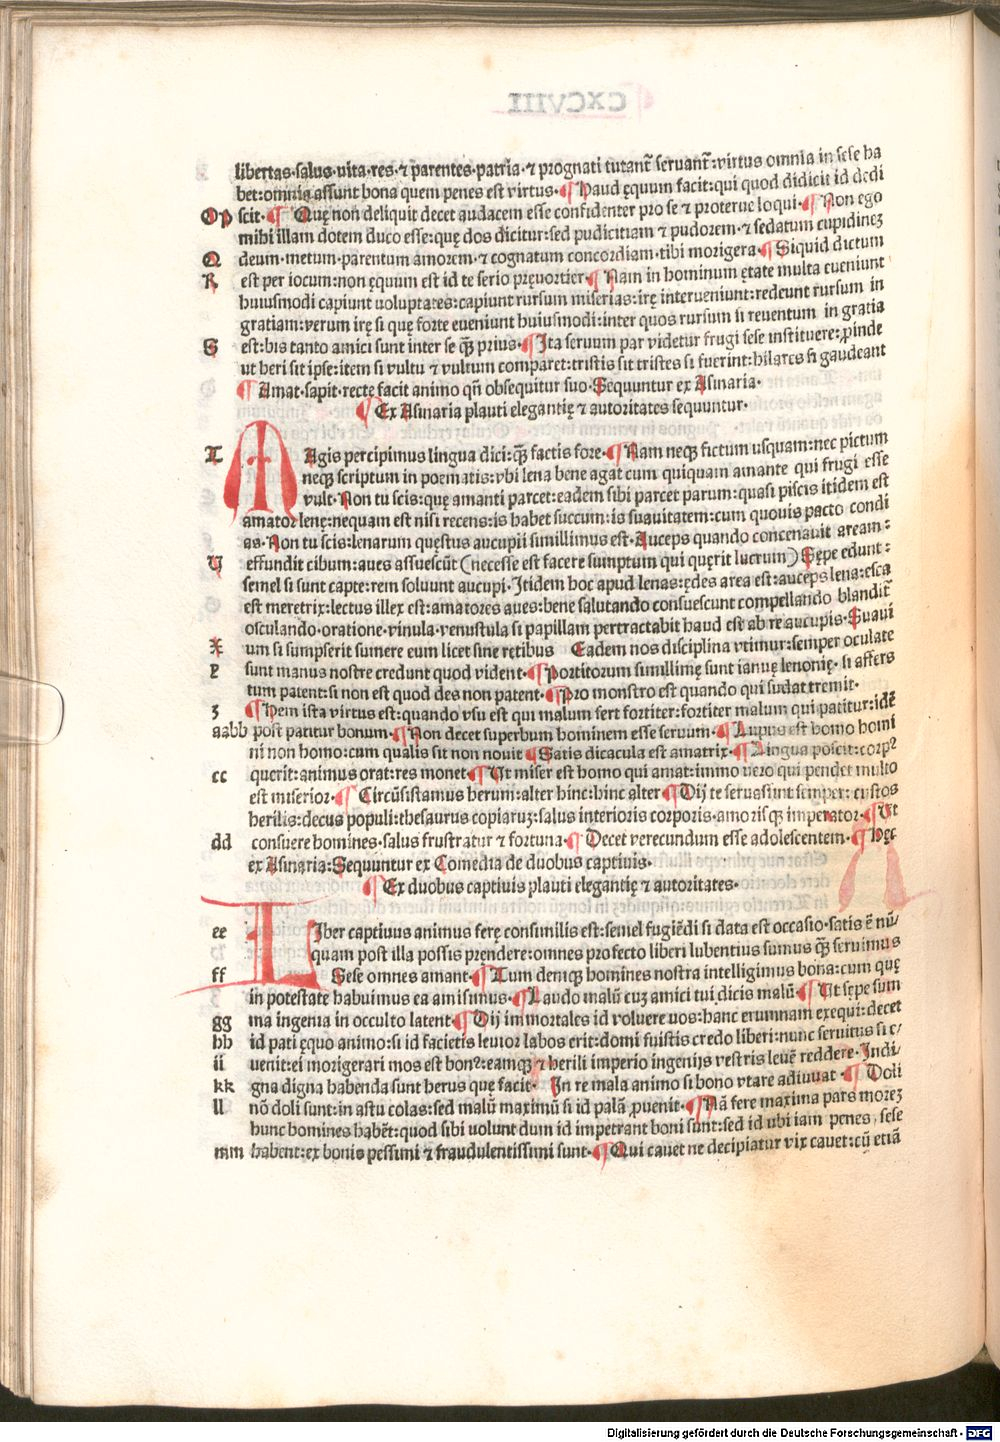 libertas·salus·vita·res·⁊ parentes·patria·⁊ prognati tutant̄ servant̄:virtus omnia in sese ha
bet:omnia assunt bona quem penes est virtus·¶ Haud ęquum facit:qui quod didicit id dedi
O p scit·¶ Quę non deliquit decet audacem esse confidenter pro se ⁊ proterue loqui·¶ Non ego
mihi illam dotem duco esse:quę dos dicitur:sed pudicitiam ⁊ pudorem·⁊ sedatum cupidineꝫ
Q deum·metum·parentum amorem·⁊ cognatum concordiam·tibi morigera·¶ Siquid dictum
R est per iocum:non ęquum est id te serio pręuortier·¶ Nam in hominum ętate multa eueniunt
huiusmodi capiunt voluptates:capiunt rursum miserias:irę interueniunt:redeunt rursum in
gratiam:verum irę si quę forte eueniunt huiusmodi:inter quos rursum si reuentum in gratia
S est:bis tanto amici sunt inter se q̄ꝫ prius·¶ Ita seruum par videtur frugi sese instituere:ꝓinde
ut heri sit ipse:item si vultu ⁊ vultum comparet:tristis sit tristes si fuerint:hilares si gaudeant
¶ Amat·sapit·recte facit animo qn̄ obsequitur suo·Sequuntur ex Asinaria·
¶ Ex Asinaria plauti elegantię ⁊ autoritates sequuntur·
T MAgis percipimus lingua dici:q̄ꝫ factis fore·¶ Nam neqꝫ fictum usquam:nec pictum
neqꝫ scriptum in poematis:vbi lena bene agat cum quiquam amante qui frugi esse
vult·Non tu scis:quę amanti parcet:eadem sibi parcet parum:quasi piscis itidem est
amator lenę:nequam est nisi recens:is habet succum:is suauitatem:cum quouis pacto condi
as·Non tu scis:lenarum quęstus aucupii simillimus est·Auceps quando concenauit aream:
V effundit cibum:aues assuescūt (necesse est facere sumptum qui quęrit lucrum) Sępe edunt:
semel si sunt captę:rem soluunt aucupi·Itidem hoc apud lenas:ędes area est:auceps lena:esca
est meretrix:lectus illex est:amatores aues:bene salutando consuescunt compellando blandit̄
osculando·oratione·vinula·venustula si papillam pertractabit haud est ab re aucupis·Suaui
X um si sumpserit sumere eum licet sine retibus Eadem nos disciplina vtimur:semper oculatę
P sunt manus nostre credunt quod vident·¶ Portitorum simillimę sunt ianuę lenonię·si affers
tum patent:si non est quod des non patent·¶ Pro monstro est quando qui sudat tremit·
ʒ ¶ Hem ista virtus est:quando vsu est qui malum fert fortiter:fortiter malum qui patitur:idē
aabb post patitur bonum·¶ Non decet superbum hominem esse seruum·¶ Lupus est homo homi
ni non homo:cum qualis sit non nouit ¶ Satis dicacula est amatrix·¶ Lingua poscit:corpꝰ
cc querit:animus orat:res monet ¶ Ut miser est homo qui amat:immo vero qui pendet multo
est miserior·¶ Circūsistamus herum:alter hinc:hinc alter ¶ Dij te seruassiunt semper:custos
herilis:decus populi:thesaurus copiaruꝫ:salus interioris corporis·amorisqꝫ imperator·¶ Ut
dd consuere homines·salus frustratur ⁊ fortuna·¶ Decet verecundum esse adolescentem·¶ Hęc
ex Asinaria:Sequuntur ex Comedia de duobus captiuis·
¶ Ex duobus captiuis plauti elegantię ⁊ autoritates·
ee LIber captiuus animus ferę consimilis est:semel fugiēdi si data est occasio·satis ē nū/
quam post illa possis prendere:omnes profecto liberi lubentius sumus q̄ꝫ seruimus
ff Sese omnes amant·¶ Tum demqꝫ homines nostra intelligimus bona:cum quę
in potestate habuimus ea amisimus·¶ Laudo malū cuꝫ amici tui dicis malū ¶ Ut sępe sum
gg ma ingenia in occulto latent ¶ Dij immortales id voluere vos:hanc erumnam exequi:decet
hh id pati ęquo animo:si id facietis leuior labos erit:domi fuistis credo liberi:nunc seruitus si e/
ii uenit:ei morigerari mos est bonꝰ:eamqꝫ ⁊ herili imperio ingenijs vestris leuē reddere·Indi/
kk gna digna habenda sunt herus quę facit· In re mala animo si bono vtare adiuuat·¶ Doli
ll nō doli sunt:in astu colas:sed malū maximū si id palā ꝓuenit·¶ Nā fere maxima pars moreꝫ
hunc homines habēt:quod sibi volunt dum id impetrant boni sunt:sed id ubi iam penes·sese
mm habent:ex bonis pessimi ⁊ fraudulentissimi sunt·¶ Qui cauet ne decipiatur vix cauet:cū etiā
Digitalisierung gefördert durch die Deutsche Forschungsgemeinschaft - DFG